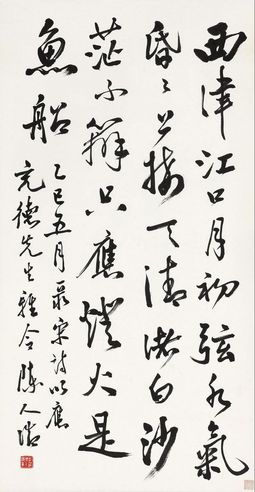 西津江口月初弦水氣
昏〻上接天清渚白沙
茫不辨只應燈火是
魚船
乙巳五月录宋詩以應
充德先生雅令 陳人浩